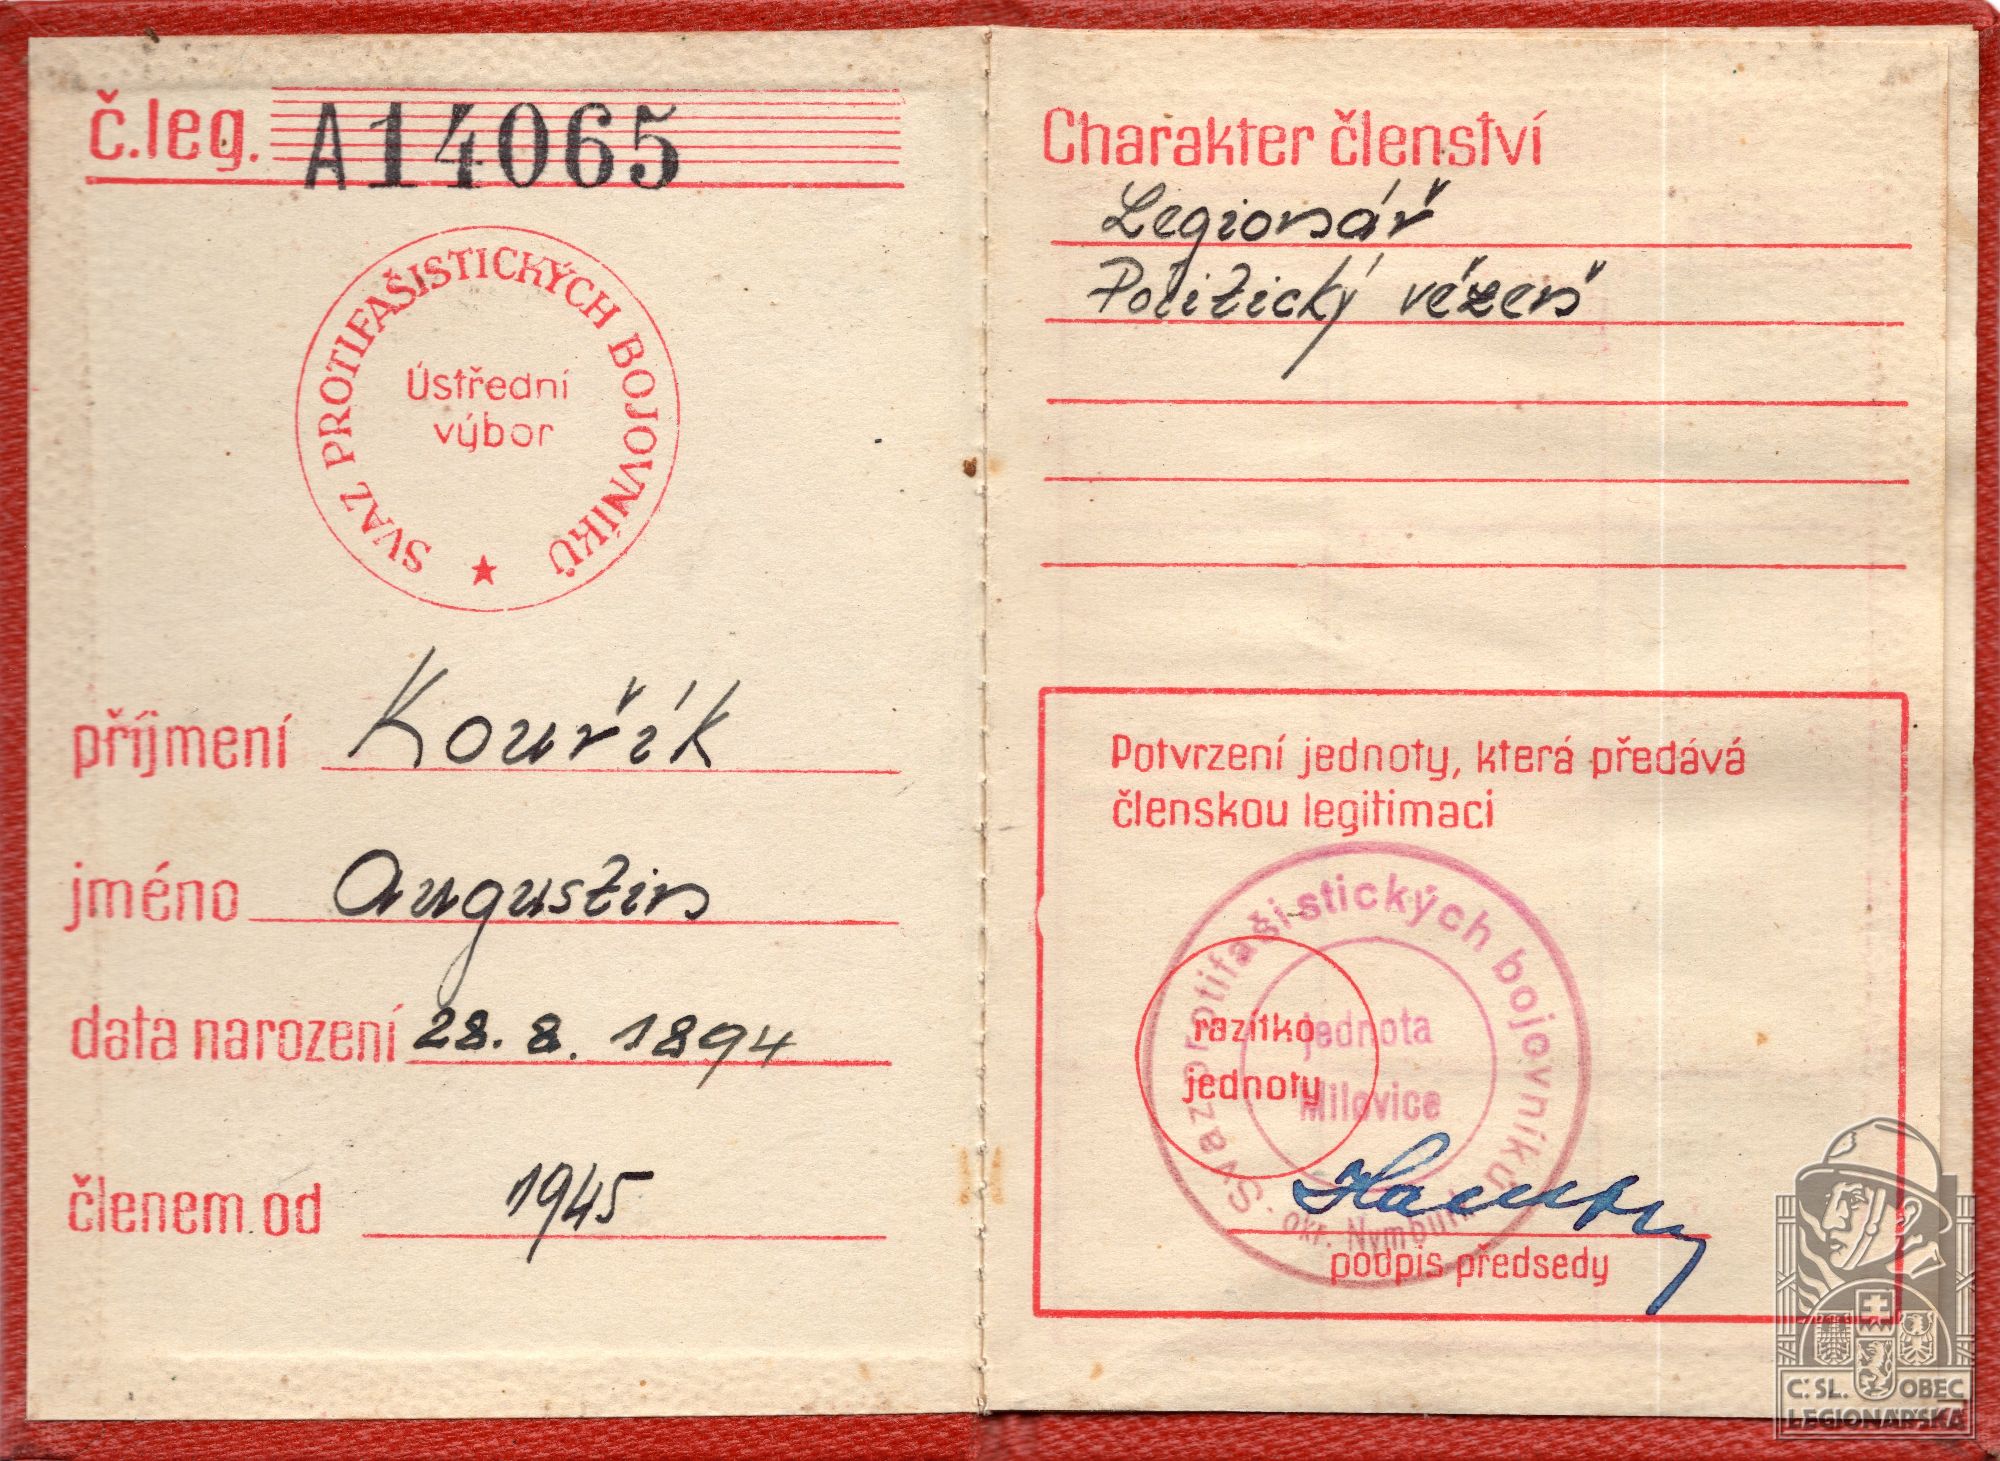 č.leg. A14065
SVAZ PROTIFAŠISTICKÝCH BOJOVNÍKŮ
Ústřední
výbor
příjmení Kouřík
jméno Augustin
data narození 28. 8. 1894
členem od 1945
Charakter členství
Legionář
Politický vězeň
Potvrzení jednoty, která předává
členskou legitimaci
razítko
jednoty
Svaz protifašistických bojovníků
jednota
Milovice
okr. Nymburk
podpis předsedy
Č. SL. OBEC
LEGIONÁŘSKÁ